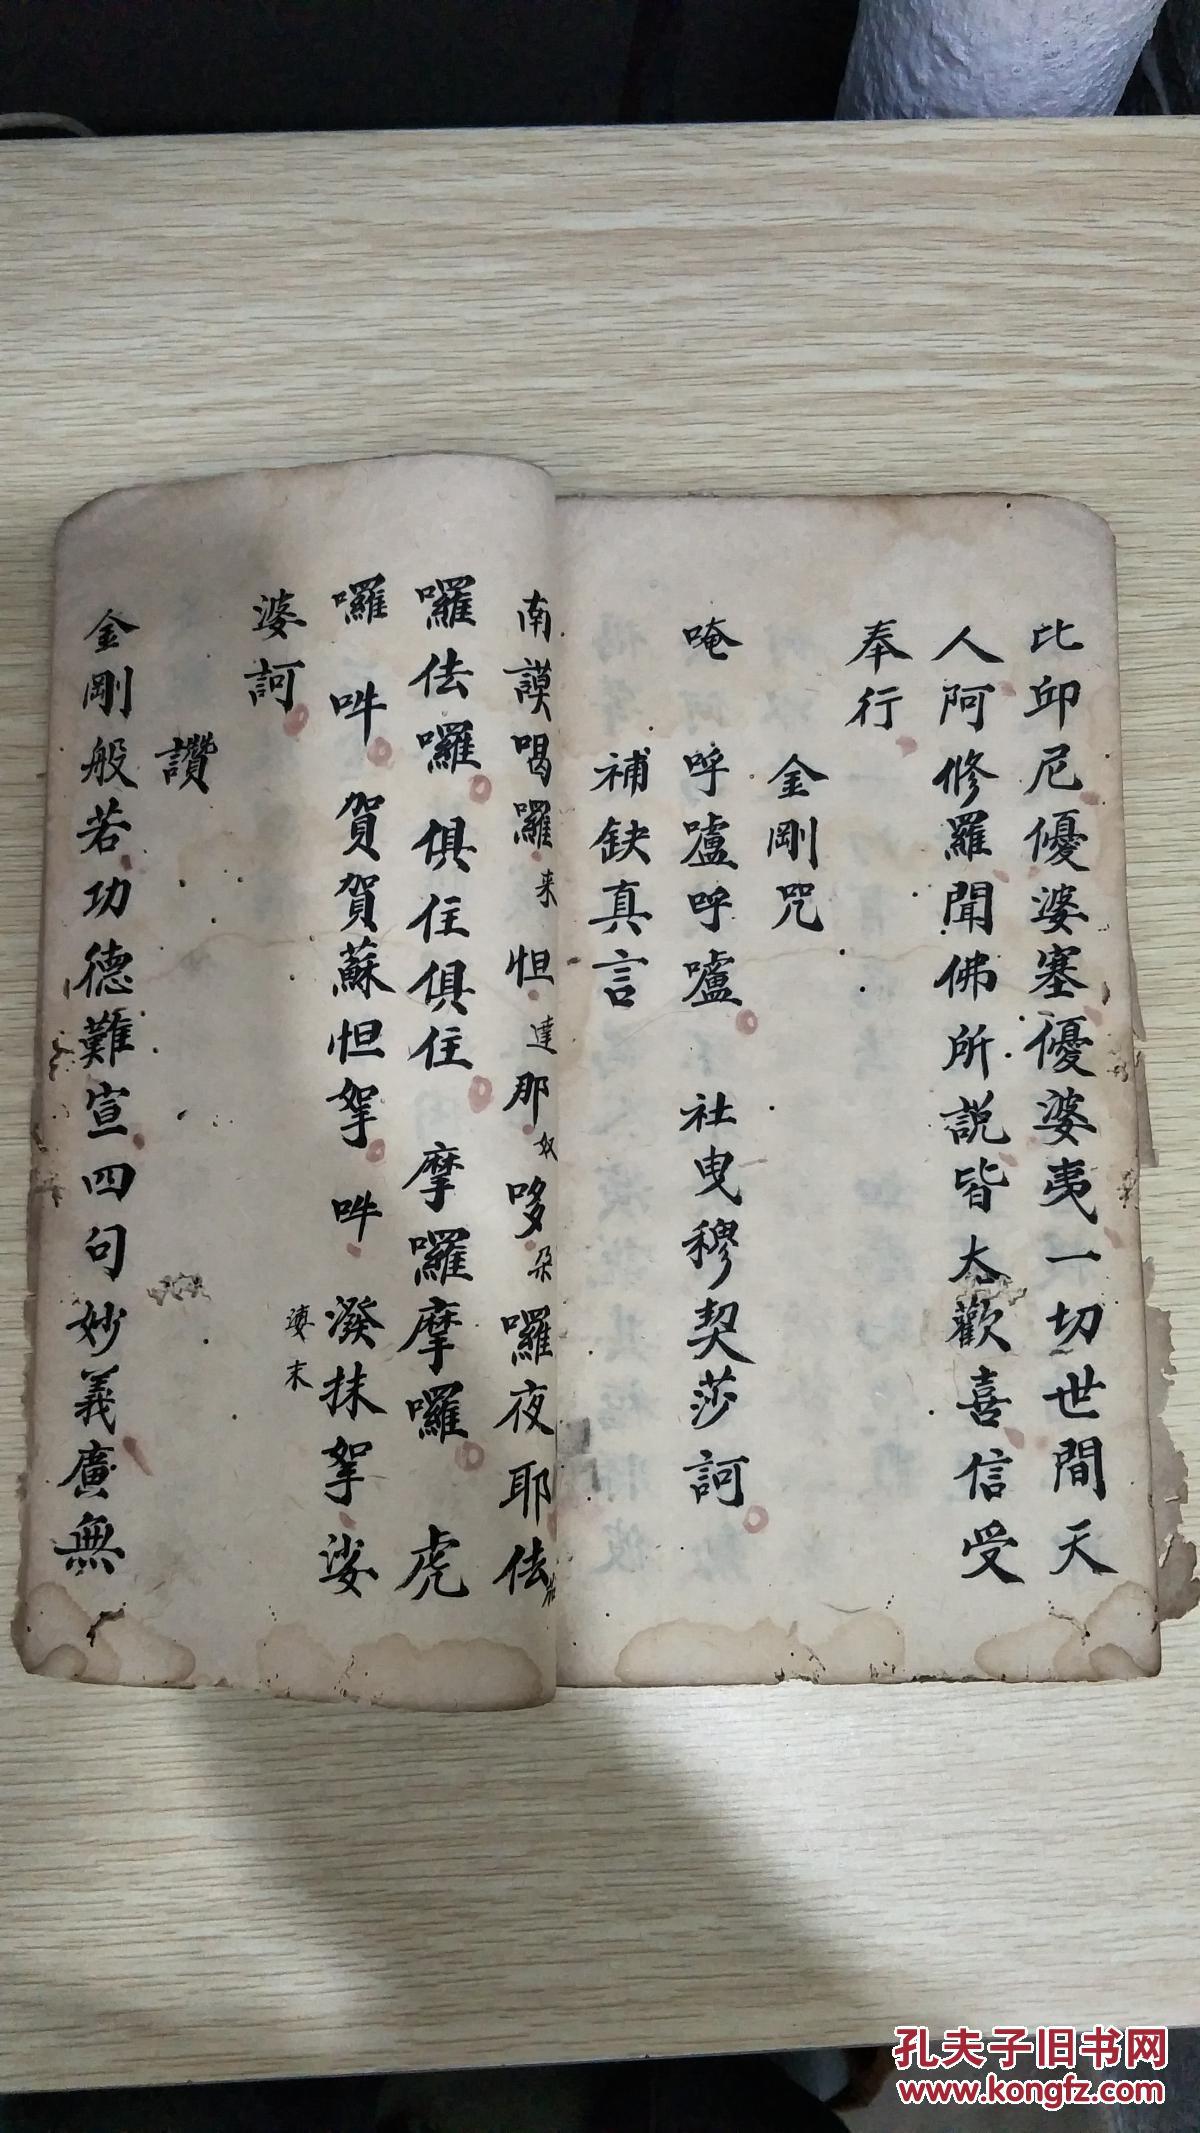 比邱尼優婆塞優婆夷一切世間天
人阿修羅聞佛所說皆大歡喜信受
奉行
金剛咒
唵 呼嚧呼嚧 社曳穆契莎訶
補缺真言
南謨喝囉来怛達那奴哆朶囉夜耶佉
囉佉囉俱住俱住 摩囉摩囉 虎
囉吽賀賀蘇怛拏吽潑抹拏娑
婆末
婆訶
讚
金剛般若功德難宣四句妙義廣無
孔夫子旧书网
www.kongfz.com